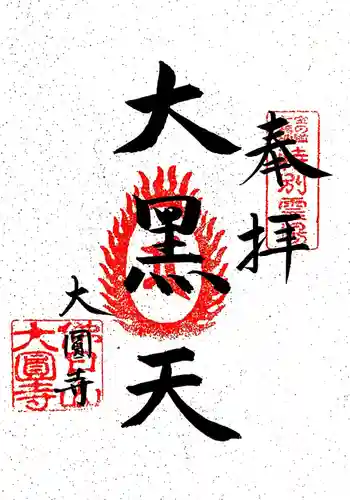 奉拝
大黒天
大圓寺
大圓寺